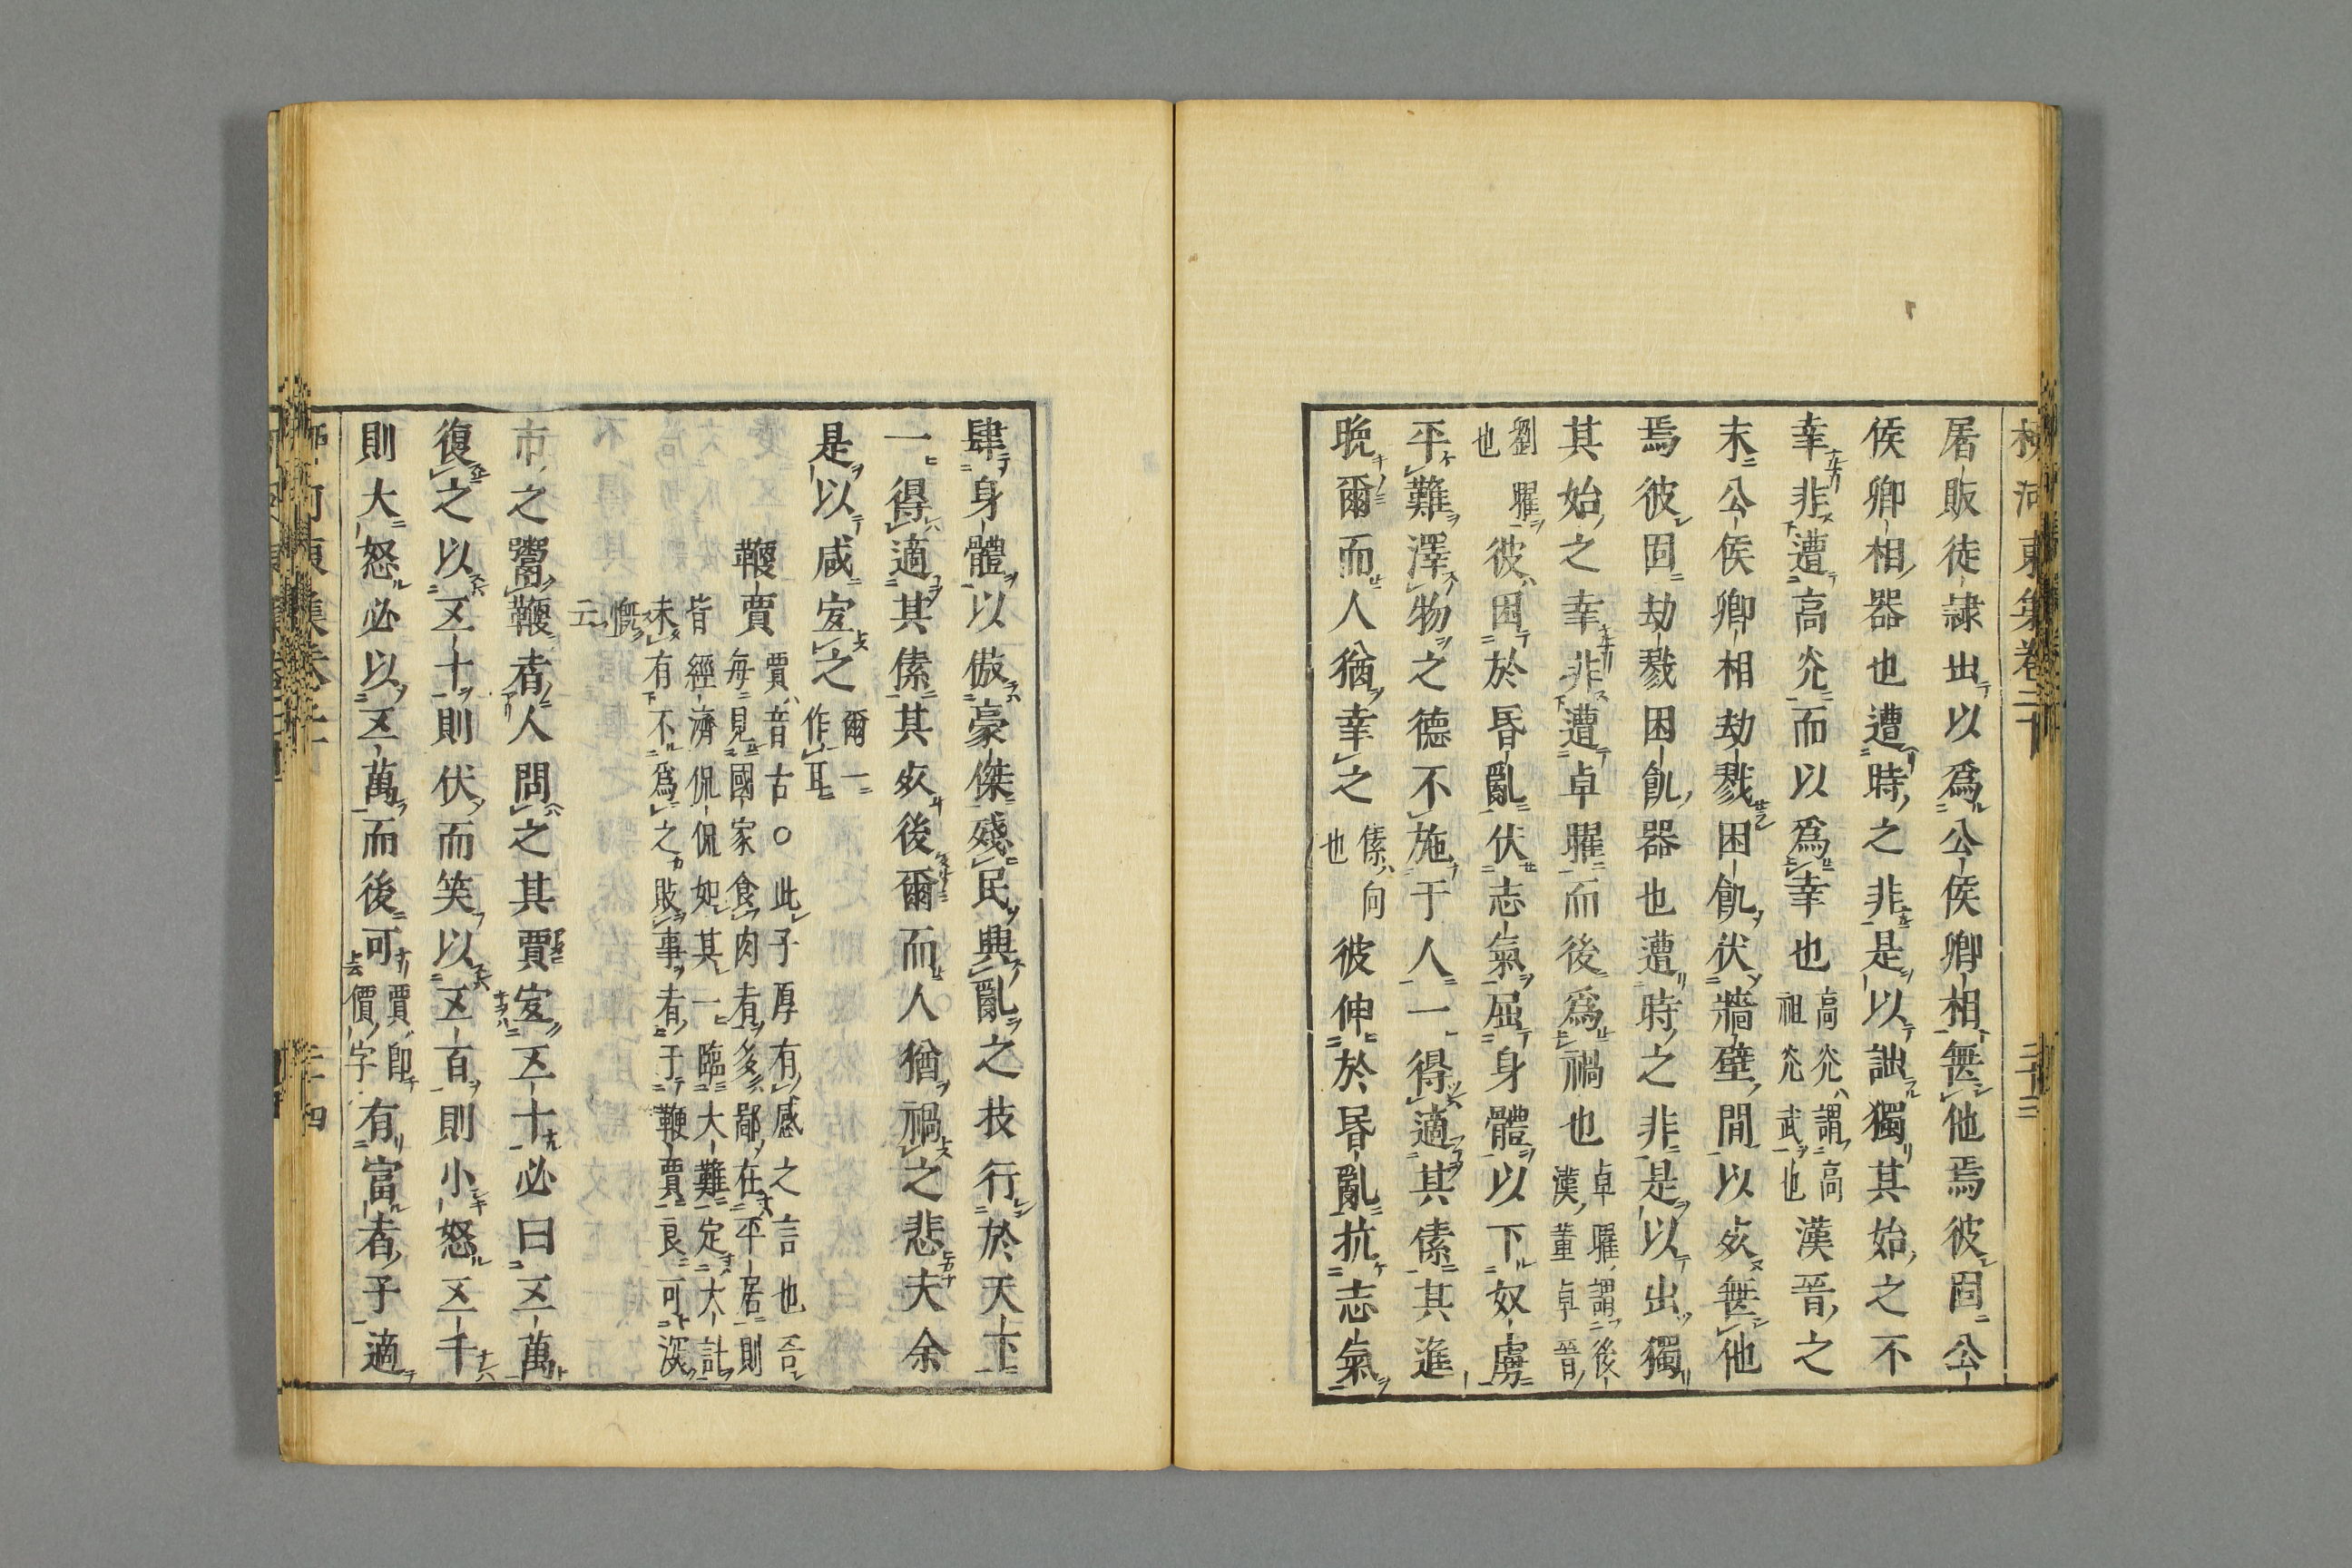 柳河東集卷二十 二十三
屠販徒隷出以爲公侯卿相無他焉彼固公
侯卿相器也遭時之非是以詘獨其始之不
幸非遭高光而以爲幸也高光謂高祖光武也漢晉之
末公侯卿相劫戮困飢伏墻壁間以死無他
焉彼固劫戮困飢器也遭時之非是以出獨
其始之幸非遭卓曜而後爲禍也卓曜謂後漢董卓晉
劉曜也彼困於昏亂伏志氣屈身體以下奴虜
平難澤物之德不施于人一得適其傃其進
晩爾而人猶幸之傃向也彼伸於昏亂抗志氣
肆身體以傲豪傑殘民興亂之技行於天下
一得適其傃其死後爾而人猶禍之悲夫余
是以咸宜之爾一作耳
鞭賈賈音古○此子厚有感之言也吾
每見國家食肉者多鄙在平居則
皆經濟侃侃如其一臨大難定大計
未有不爲之敗事者于鞭賈良可深
慨云
市之鬻鞭者人問之其賈宜五十必曰五萬
復之以五十則伏而笑以五百則小怒五千
則大怒必以五萬而後可賈即價字有富者子適